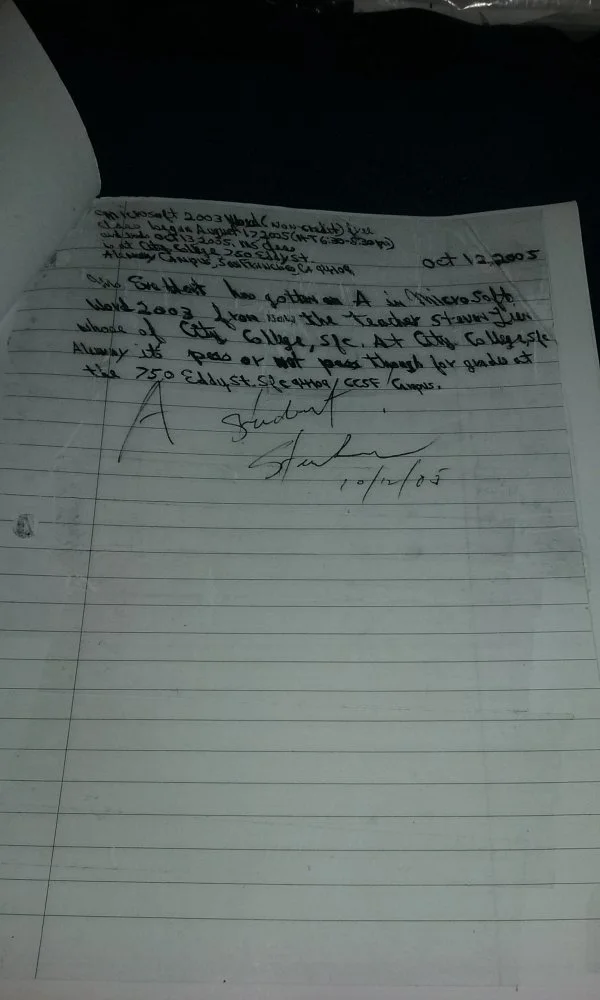 Microsoft 2003 Word (Non-credit) free
class began August 17 2005 (M-T 6:30-8:30 pm)
and ends Oct 13 2005, this class
is at City College 750 Eddy St.
Alemany Campus, San Francisco Ca 94109
Oct 12 2005
has gotten an A in Microsoft
Word 2003 from the Teacher Steven
whose of City College, S.f.c. At City College, S.f.c
Alemany its pass or not pass though for grades at
the 750 Eddy St. S.f.c 94109 / CCSF / Campus.
A student
10/12/05